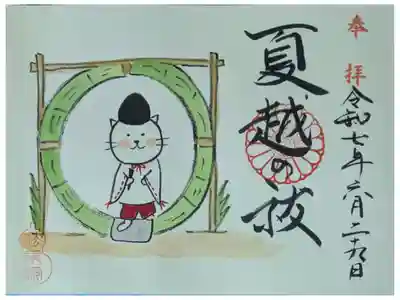 奉拝
令和七年六月二十九日
夏越の祓